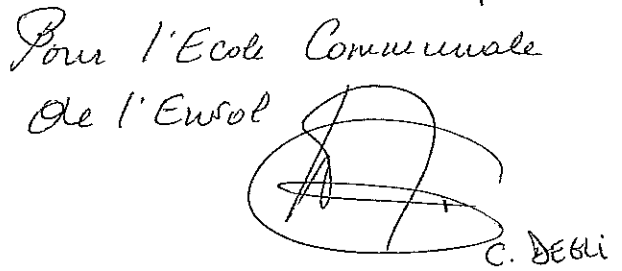 Pour l'Ecole Communale
de l'Envol
C. DEGLI